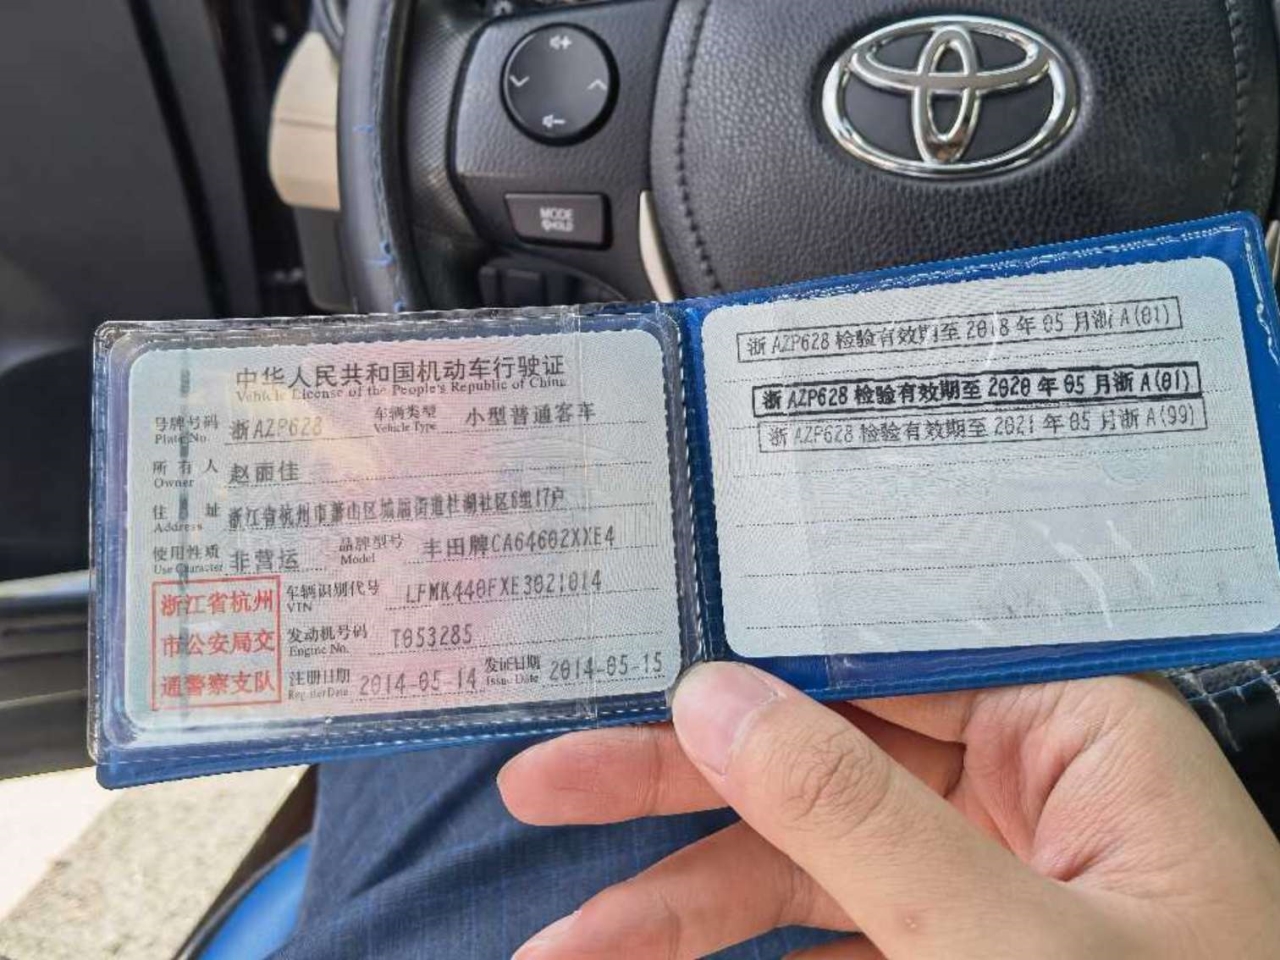 MODE
HOLD
中华人民共和国机动车行驶证
Vehicle License of the People's Republic of China
号牌号码 浙AZP628 车辆类型 小型普通客车
Plate No. Vehicle Type
所有人 赵丽佳
Owner
住址 浙江省杭州市萧山区城厢街道杜湖社区6组17户
Address
使用性质 非营运 品牌型号 丰田牌CA64602XXE4
Use Character Model
浙江省杭州
市公安局交
通警察支队
车辆识别代号 LFMK440FXE3021014
VIN
发动机号码 T053285
Engine No.
注册日期 2014-05-14 发证日期 2014-05-15
Register Date Issue Date
浙AZP628检验有效期至2018年05月浙A(01)
浙AZP628检验有效期至2020年05月浙A(01)
浙AZP628检验有效期至2021年05月浙A(99)